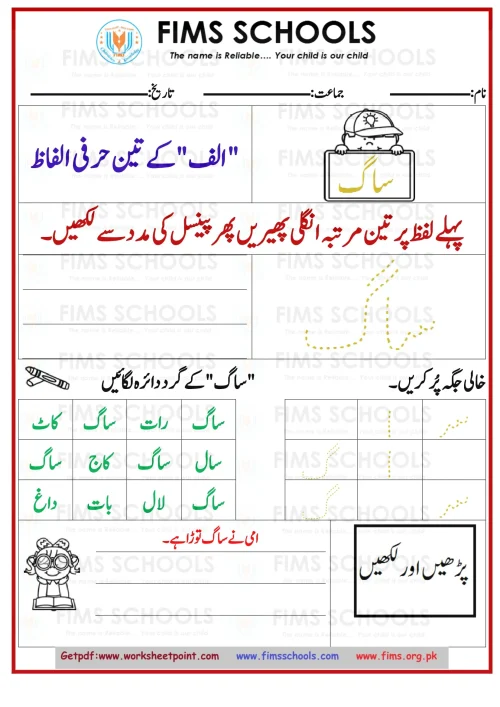 FIMS SCHOOLS
The name is Reliable.... Your child is our child
نام: جماعت: تاریخ:
"الف" کے تین حرفی الفاظ
ساگ
پہلے لفظ پر تین مرتبہ انگلی پھیریں پھر پینسل کی مدد سے لکھیں۔
ساگ
خالی جگہ پُر کریں۔
"ساگ" کے گرد دائرہ لگائیں
ساگ رات ساگ کاٹ
سال ساگ کاج ساگ
ساگ لال بات داغ
پڑھیں اور لکھیں
امی نے ساگ توڑا ہے۔
Getpdf:www.worksheetpoint.com www.fimsschools.com www.fims.org.pk